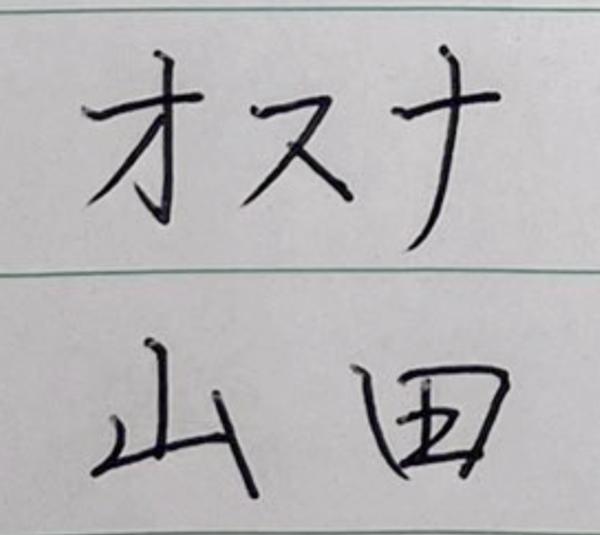 オスナ
山田